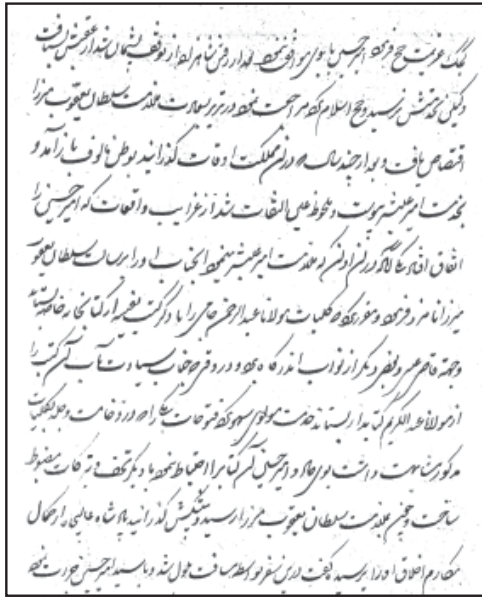 عزیمت حج فرمود امیر حسین با وی موافقت نمود بعد از رفتن از توقف پشیمان شد از عقبش بشتافت
ولیکن بخدمتش نرسید و حج اسلام کرده مراجعت نمود در تبریز بسعادت ملازمت سلطان یعقوب میرزا
اختصاص یافت و بعد از چند سال که در ان مملکت اوقات گذرانید بوطن مالوف باز آمد و
بخدمت امیر علیشیر پیوست و ملحوظ عین التفات شد از غرایب واقعات که امیر حسین را
اتفاق افتاد یکی آنکه در ان اوان که ملازمت امیر علیشیر مینمود آنجناب او را برسالت سلطان یعقوب
میرزا نامزد فرمود و مقرر کرد که کلیات مولانا عبدالرحمن جامی را با دیگر کتب نفیسه از کتابخانه خاصه بستاند
و جهة قاضی عیسی و بعضی دیگر از نواب آن درگاه برد و در وقتی که جناب سیادت مآب آن کتب را
از مولانا عبدالکریم کتابدار می‌ستاند خدمت مولوی سهو کرده فتوحات مکی را که در ضخامت و جلد بکلیات
مذکور مشابهت داشت بوی داد و امیر حسین آن کتابرا احتیاط نکرده با دیگر تحف و تبرکات مضبوط
ساخت و چون بملازمت سلطان یعقوب میرزا رسید و پیشکش گذرانید پادشاه عالیجاه از کمال
مکارم اخلاق او را پرسید گفت درین سفر بواسطه مسافت ملول شده باشید امیر حسین